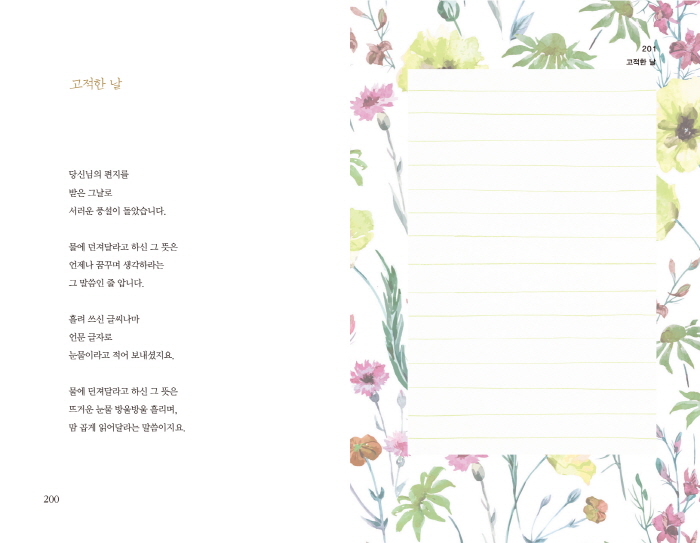 고적한 날
당신님의 편지를
받은 그날로
서러운 풍설이 돌았습니다.
물에 던져달라고 하신 그 뜻은
언제나 꿈꾸며 생각하라는
그 말씀인 줄 압니다.
흘려 쓰신 글씨나마
언문 글자로
눈물이라고 적어 보내셨지요.
물에 던져달라고 하신 그 뜻은
뜨거운 눈물 방울방울 흘리며,
맘 곱게 읽어달라는 말씀이지요.
200
201
고적한 날